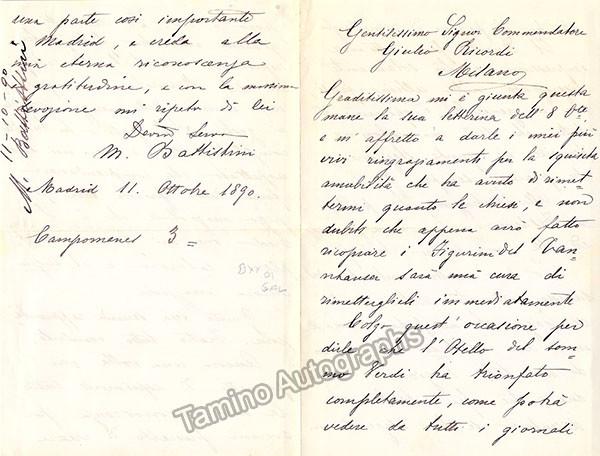 Gentilissimo Signor Commendatore
Giulio Ricordi
Milano
Graditissima mi è giunta questa
mane la sua letterina dell' 8 8bre
e m' affretto a darle i miei più
vivi ringraziamenti per la squisita
amabilità che ha avuto di rimet=
termi quanto le chiesi, e non
dubiti che appena avrò fatto
ricopiare i Figurini del Tan=
nhauser sarà mia cura di
rimetterglieli immediatamente
Colgo quest' occasione per
dirle che l' Otello del som=
mo Verdi ha trionfato
completamente, come potrà
vedere da tutti i giornali
una parte così importante
a Madrid, e creda alla
mia eterna riconoscenza
e gratitudine, e con la massima
devozione mi ripeto di lei
Devmo Servo
M. Battistini
Madrid 11. Ottobre 1890.
Campomenes 3=
11-10-90
M. Battistini
Tamino Autographs